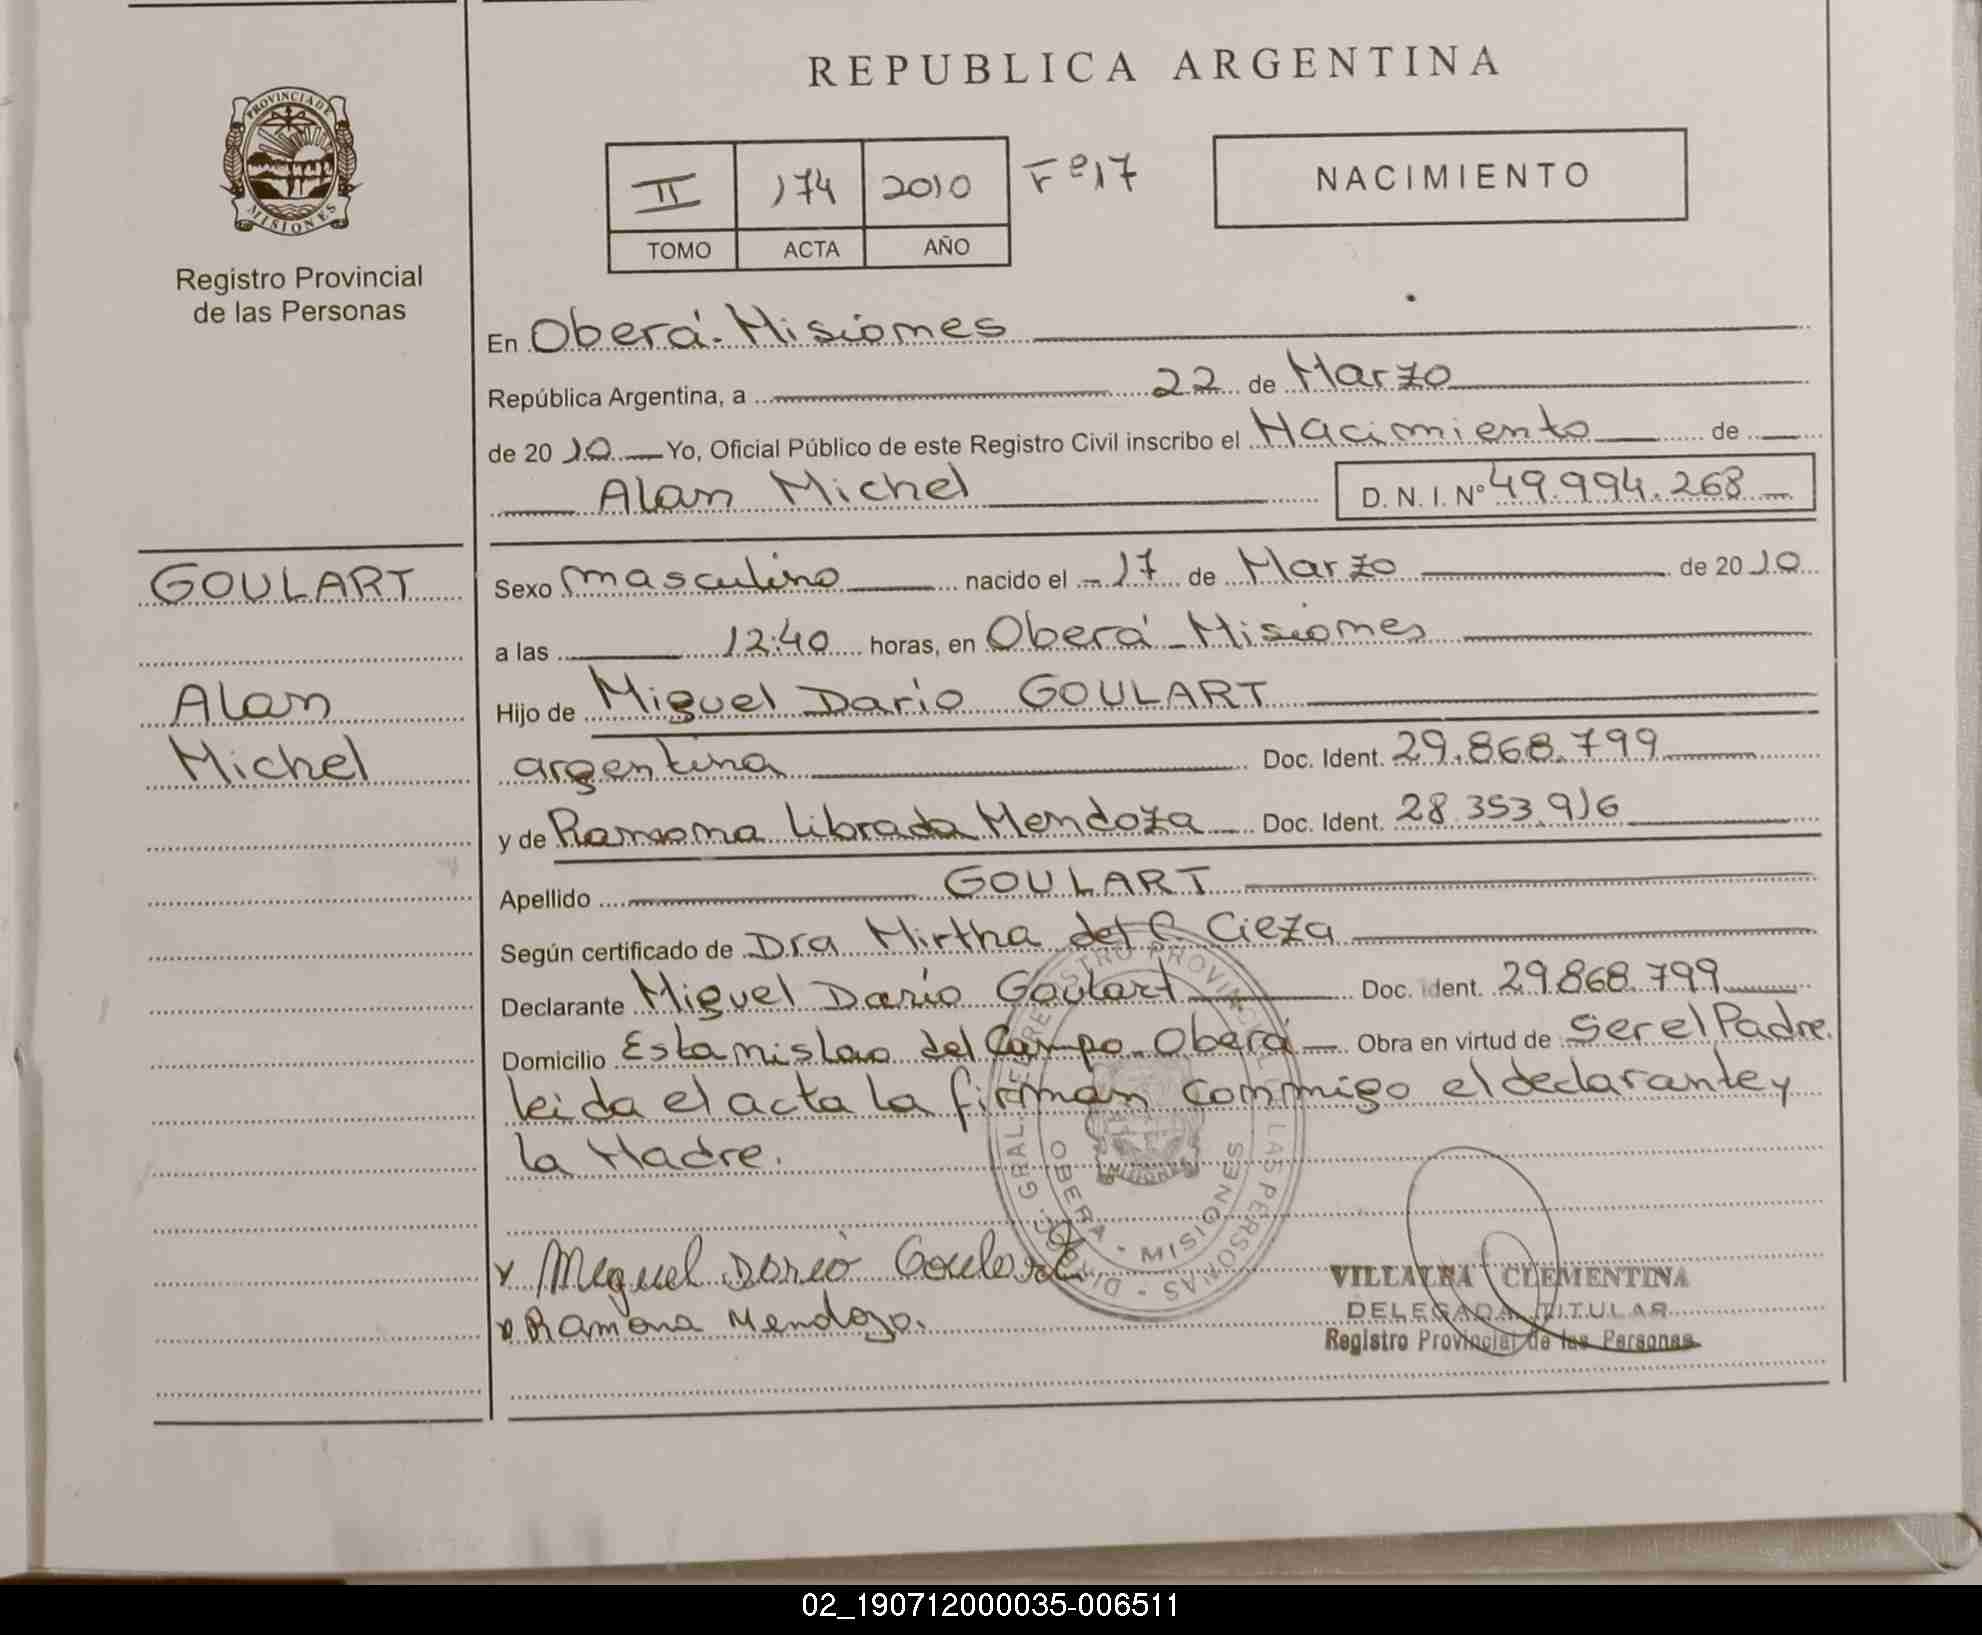 REPUBLICA ARGENTINA
PROVINCIA DE
MISIONES
Registro Provincial
de las Personas
II 174 2010 Fº17
TOMO ACTA AÑO
NACIMIENTO
En Oberá - Misiones
República Argentina, a 22 de Marzo
de 20 10 Yo, Oficial Público de este Registro Civil inscribo el Nacimiento de
Alan Michel D. N. I. Nº 49.994.268
GOULART
Alan
Michel
Sexo masculino nacido el 17 de Marzo de 20 10
a las 12:40 horas, en Oberá - Misiones
Hijo de Miguel Dario GOULART
argentina Doc. Ident. 29.868.799
y de Ramona Librada Mendoza Doc. Ident. 28.353.916
Apellido GOULART
Según certificado de Dra Mirtha del C. Cieza
Declarante Miguel Darío Goulart Doc. Ident. 29.868.799
Domicilio Estanislao del Campo - Oberá Obra en virtud de Ser el Padre.
leida el acta la firman conmigo el declarante y
la Madre.
DIREC. GRAL. DE REGISTRO PROVINCIAL DE LAS PERSONAS
OBERA - MISIONES
Miguel Dario Goulart
Ramona Mendoza.
VILLALBA CLEMENTINA
DELEGADA TITULAR
Registro Provincial de las Personas
02_190712000035-006511